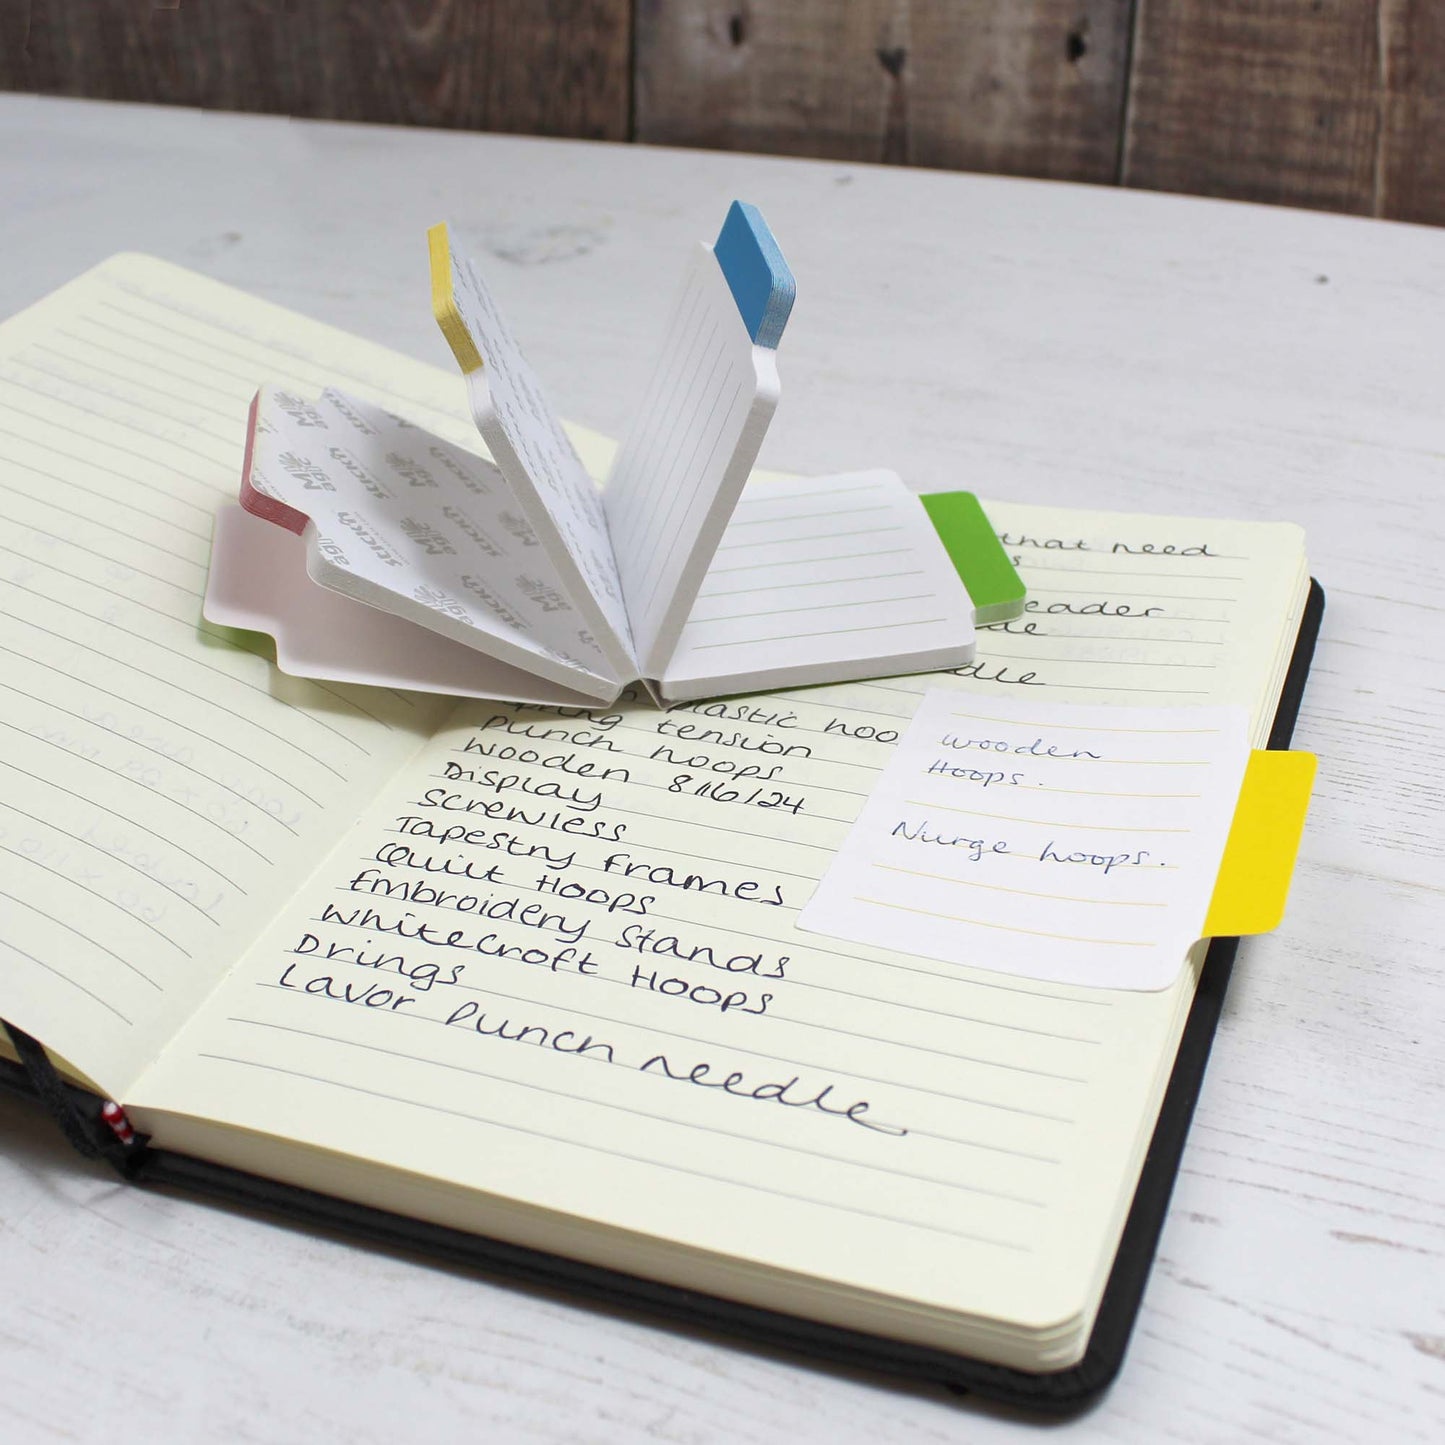 that need
s
eader
dle
dle
plastic hoo
spring tension
punch hoops
wooden 8/16/24
Display
Screwless
Tapestry Frames
Quilt Hoops
Embroidery Stands
Whitecroft Hoops
Drings
Lavor Punch needle
wooden
Hoops.
Nurge hoops.
Magic
stick'n